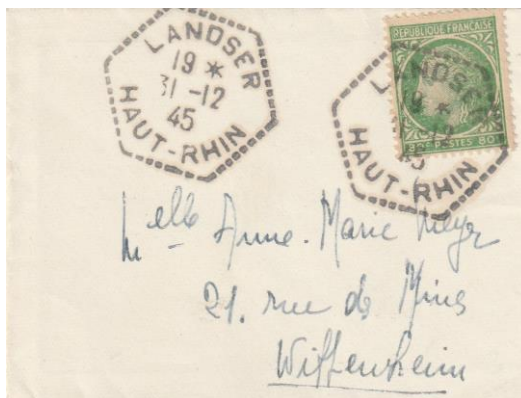 LANDSER
19 *
31-12
45
HAUT-RHIN
REPUBLIQUE FRANÇAISE
LANDSER
19 *
-12
45
HAUT-RHIN
POSTES
Melle Anne-Marie Meyer
21. rue de Mines
Wittenheim